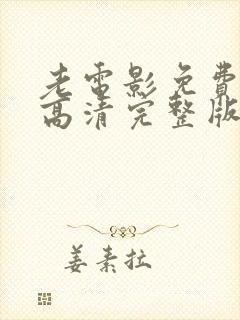 老电影免费
高清完整版
姜素拉